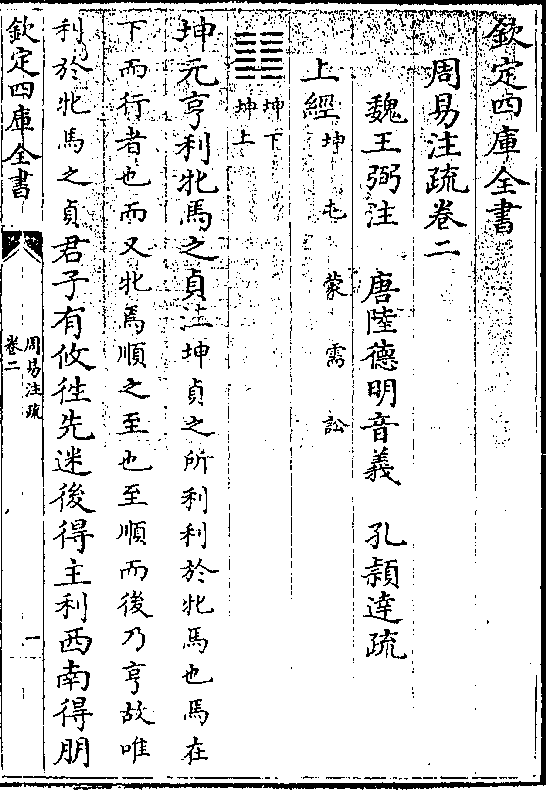 欽定四庫全書
周易注疏卷二
魏王弼注 唐陸德明音義 孔穎達疏
上經 坤 屯 蒙 需 訟
坤下
坤上
坤元亨利牝馬之貞注坤貞之所利利於牝馬也馬在
下而行者也而又牝焉順之至也至順而後乃亨故唯
利於牝馬之貞君子有攸徃先迷後得主利西南得朋
欽定四庫全書
周易注疏
卷二
一